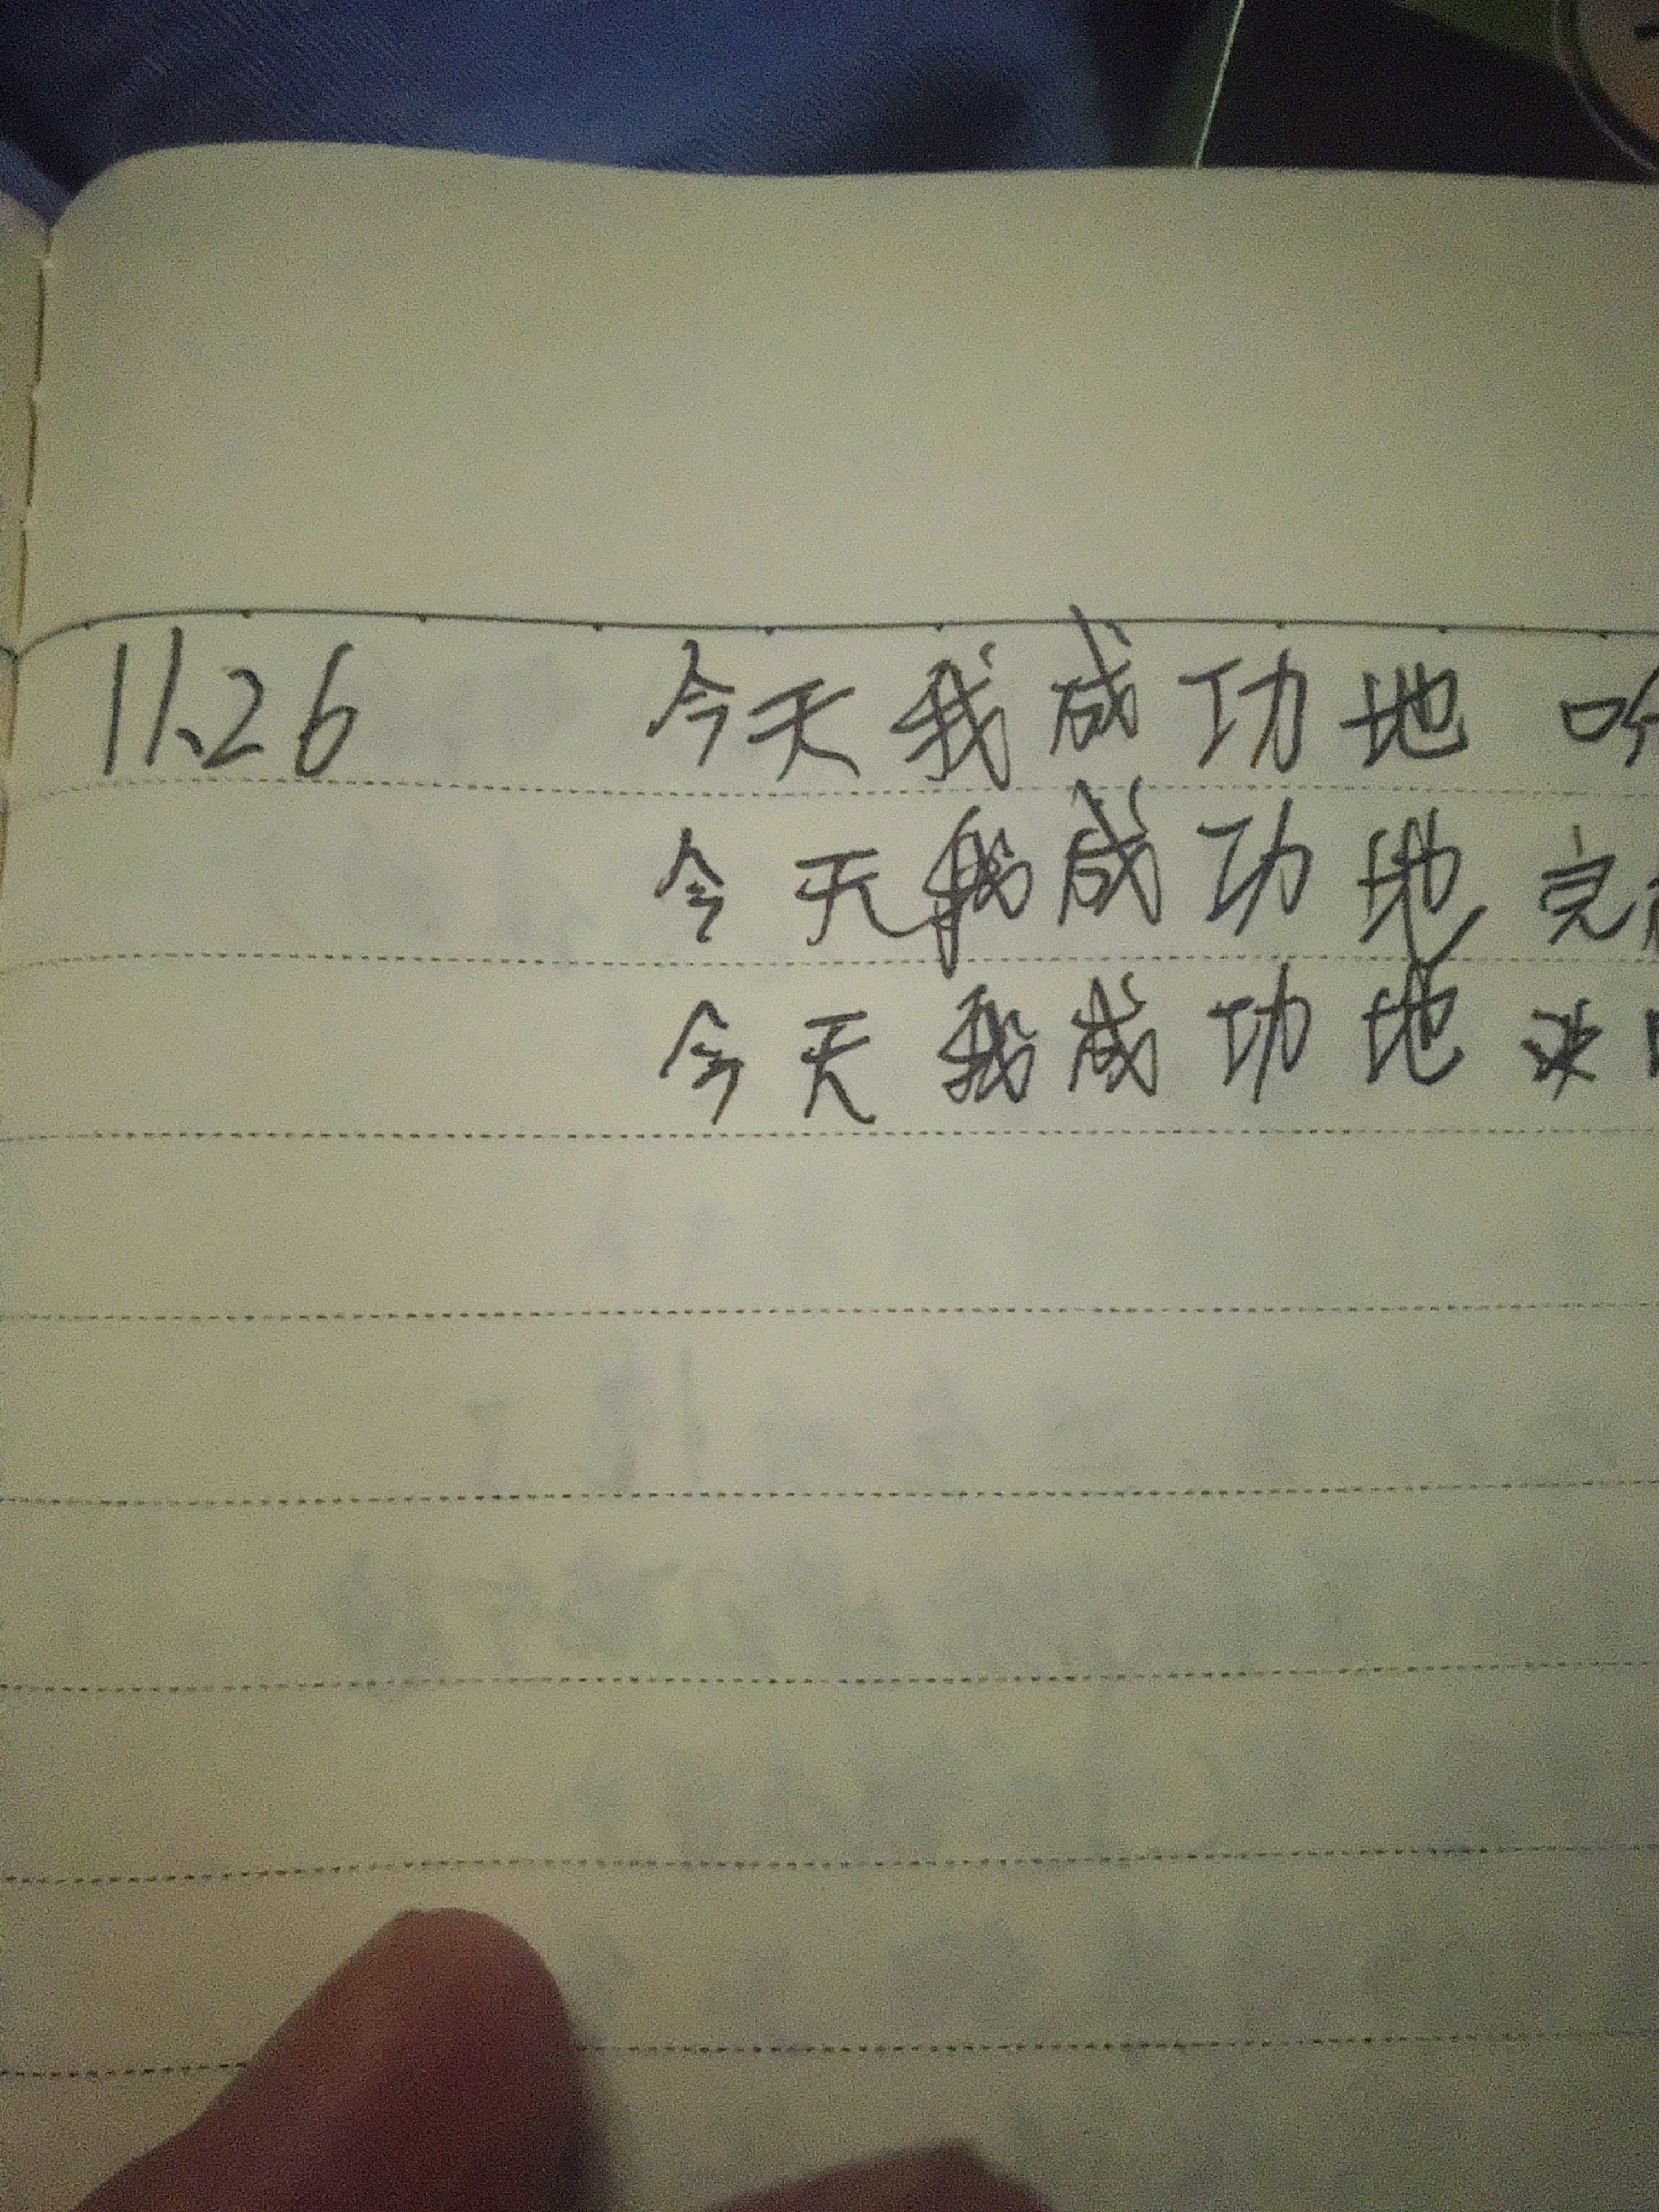 11.26 今天我成功地
今天我成功地完
今天我成功地决